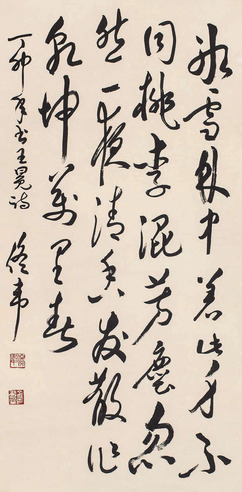 冰雪林中着此身不
同桃李混芳尘忽
然一夜清香发散作
乾坤万里春
丁卯年书王冕诗
佟韦